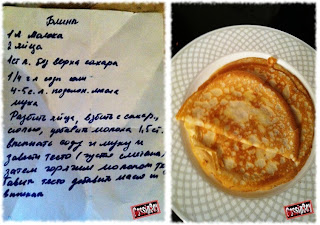 Блины
1 л молока
2 яйца
1 ст л. без верха сахара
1/4 ч л соды
4-5 с. л. подсолн. масла
мука
Разбить яйца, взбить с сахар,
солью, добавить молока 1,5 ст.
всыпать соду и муку и
замесить тесто густ сметана,
затем горячим молоком
тесто добавить масло и